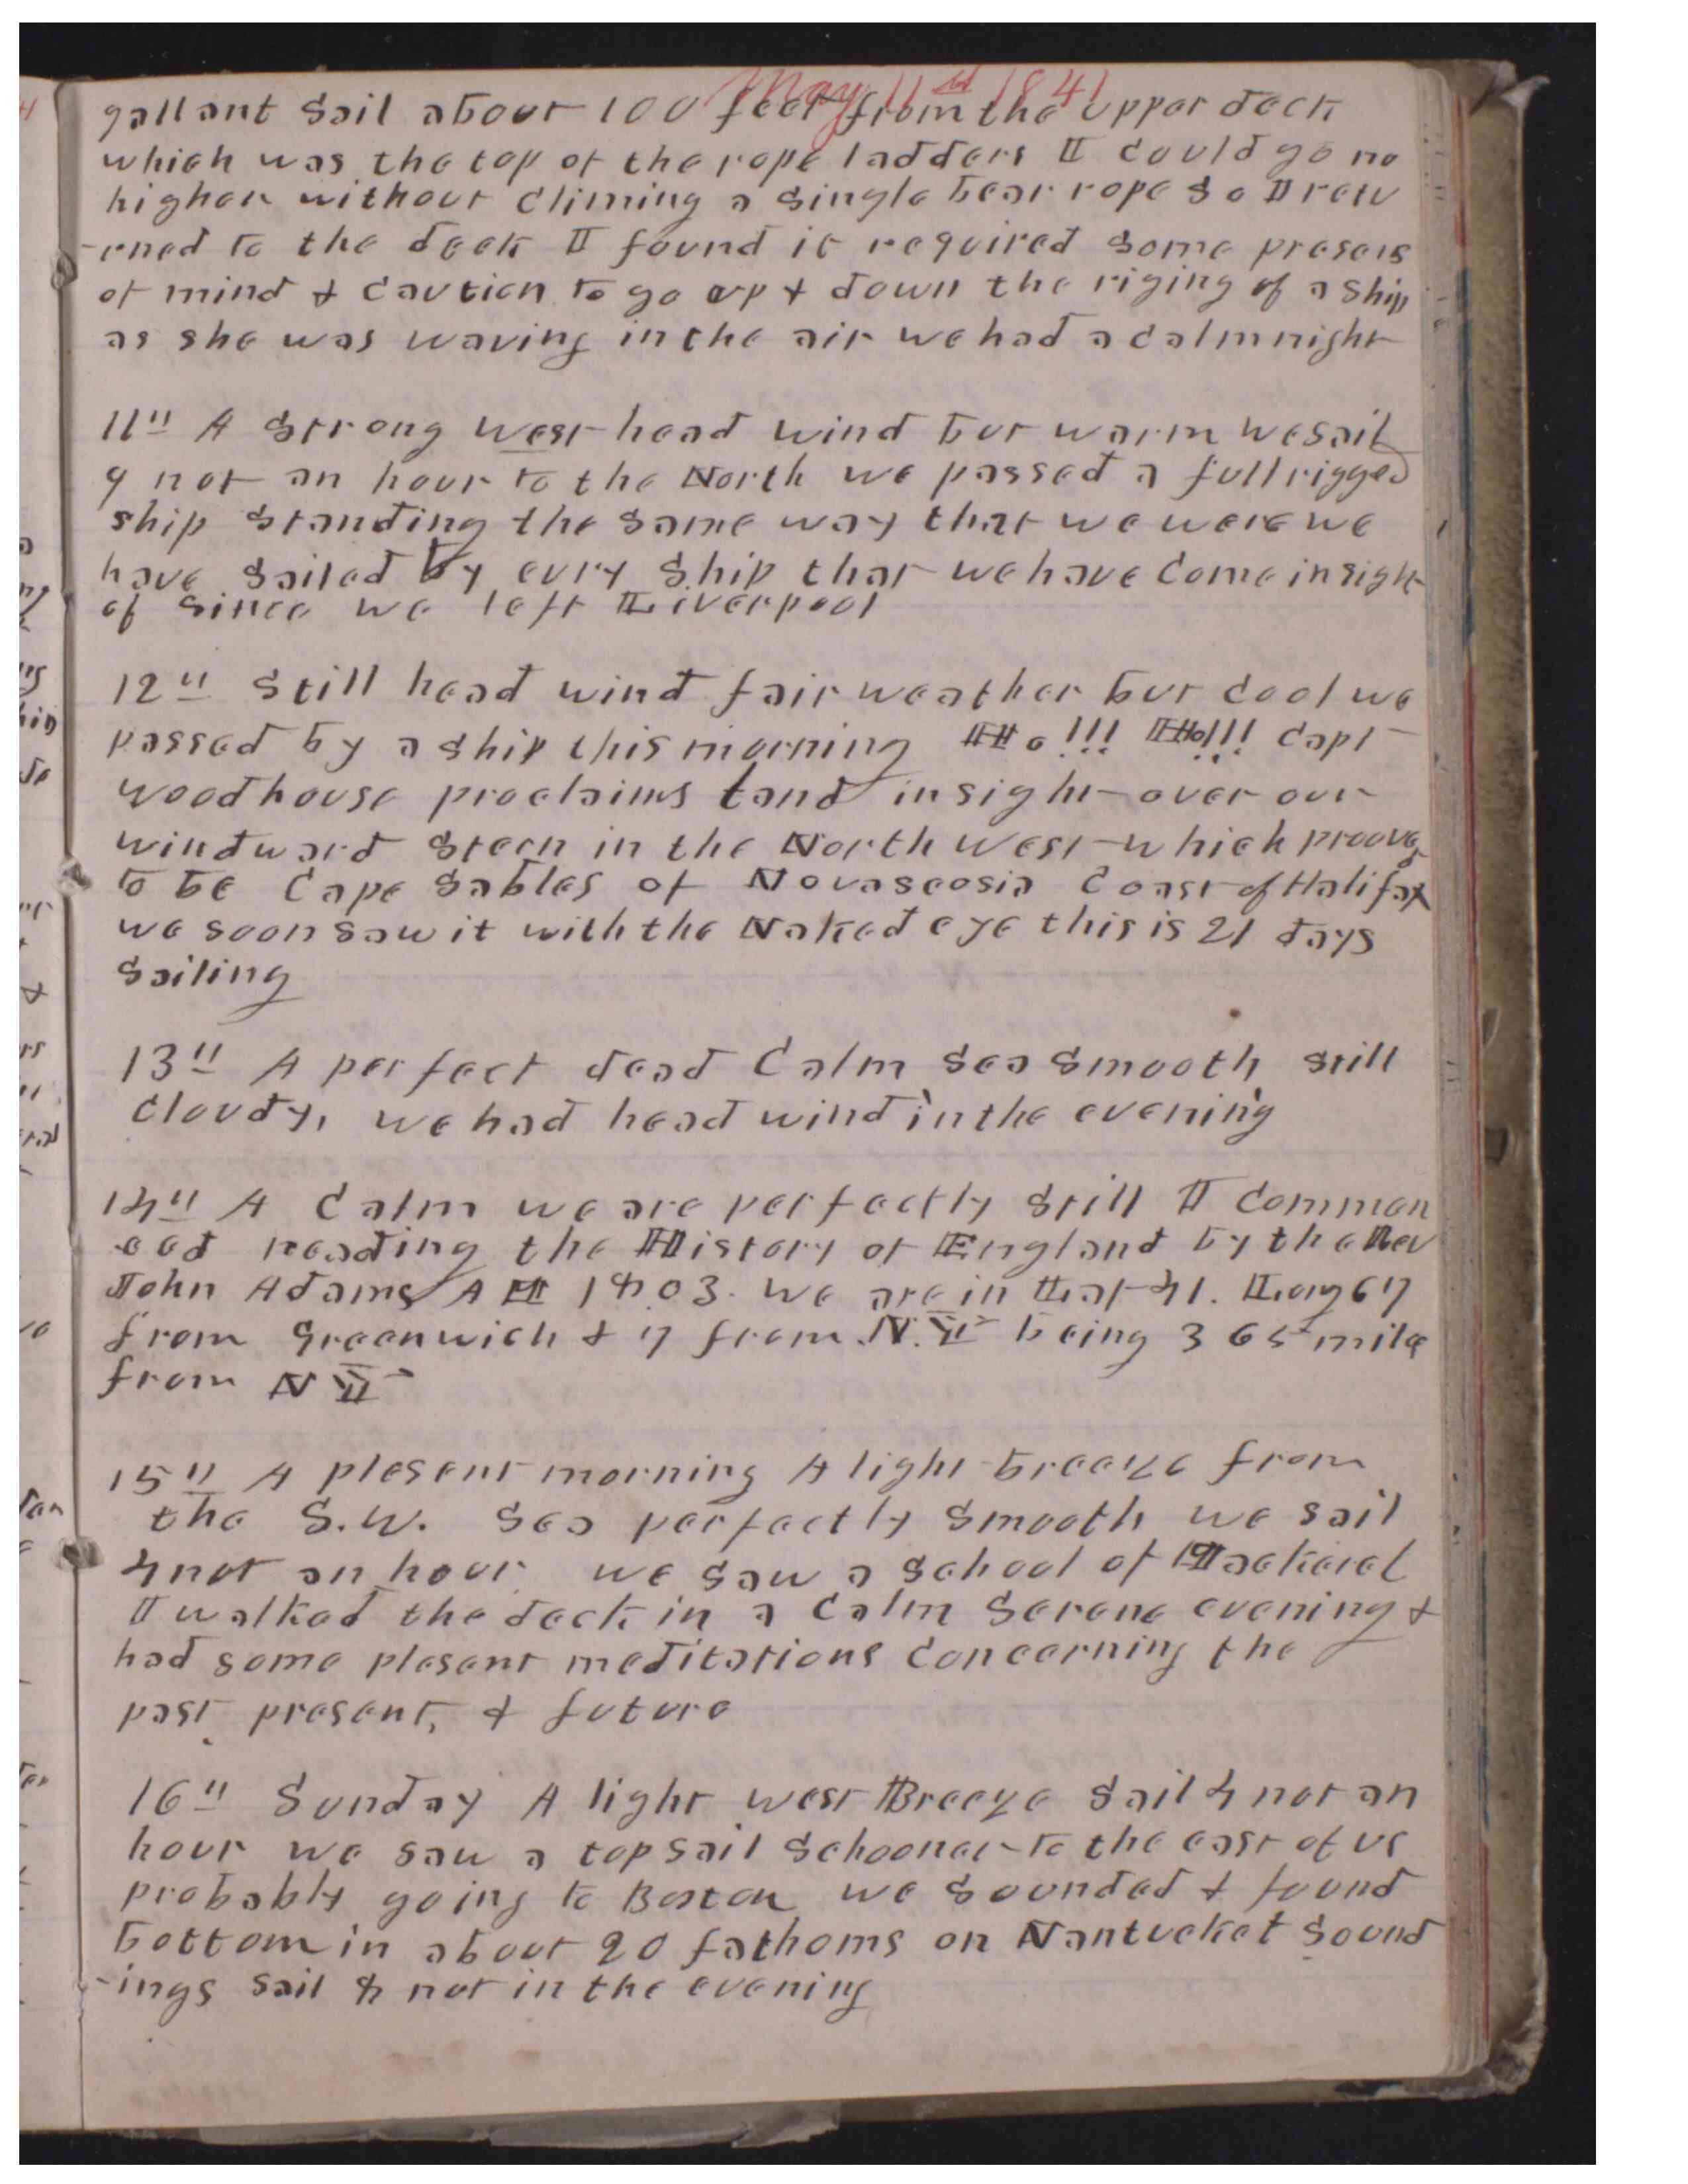 May 11th 1841
gallant sail about 100 feet from the upper deck
which was the top of the rope ladders I could go no
higher without climing a single bear rope so I retu
-rned to the deck I found it required some presens
of mind & caution to go up & down the riging of a ship
as she was waving in the air we had a calm night
11" A strong west head wind but warm we sail
9 not an hour to the North we passed a full rigged
ship standing the same way that we were we
have sailed by evry ship that we have come in sight
of since we left Liverpool
12" Still head wind fair weather but cool we
passed by a ship this morning Ho!!! Ho!!! Capt
Woodhouse proclaims land in sight over our
windward stern in the North West which proove
to be Cape Sables of Novascosia Coast of Halifax
we soon saw it with the Naked eye this is 21 days
sailing
13" A perfect dead Calm sea smooth still
cloudy, we had head wind in the evening
14" A Calm we are perfectly still I commen
ced reading the History of England by the Rev
John Adams AM 1803. we are in Lat 41. Long 67
from Greenwich & 7 from N.Y being 365 mile
from N Y
15" A plesent morning A light breeze from
the S.W. sea perfectly smooth we sail
4 not an hour we saw a school of Mackerel
I walked the deck in a calm serene evening &
had some plesant meditations concerning the
past, present, & future
16" Sunday A light west Breeze sail 4 not an
hour we saw a top sail schooner to the east of us
probably going to Boston we sounded & found
bottom in about 20 fathoms on Nantucket Sound
-ings sail 8 not in the evening